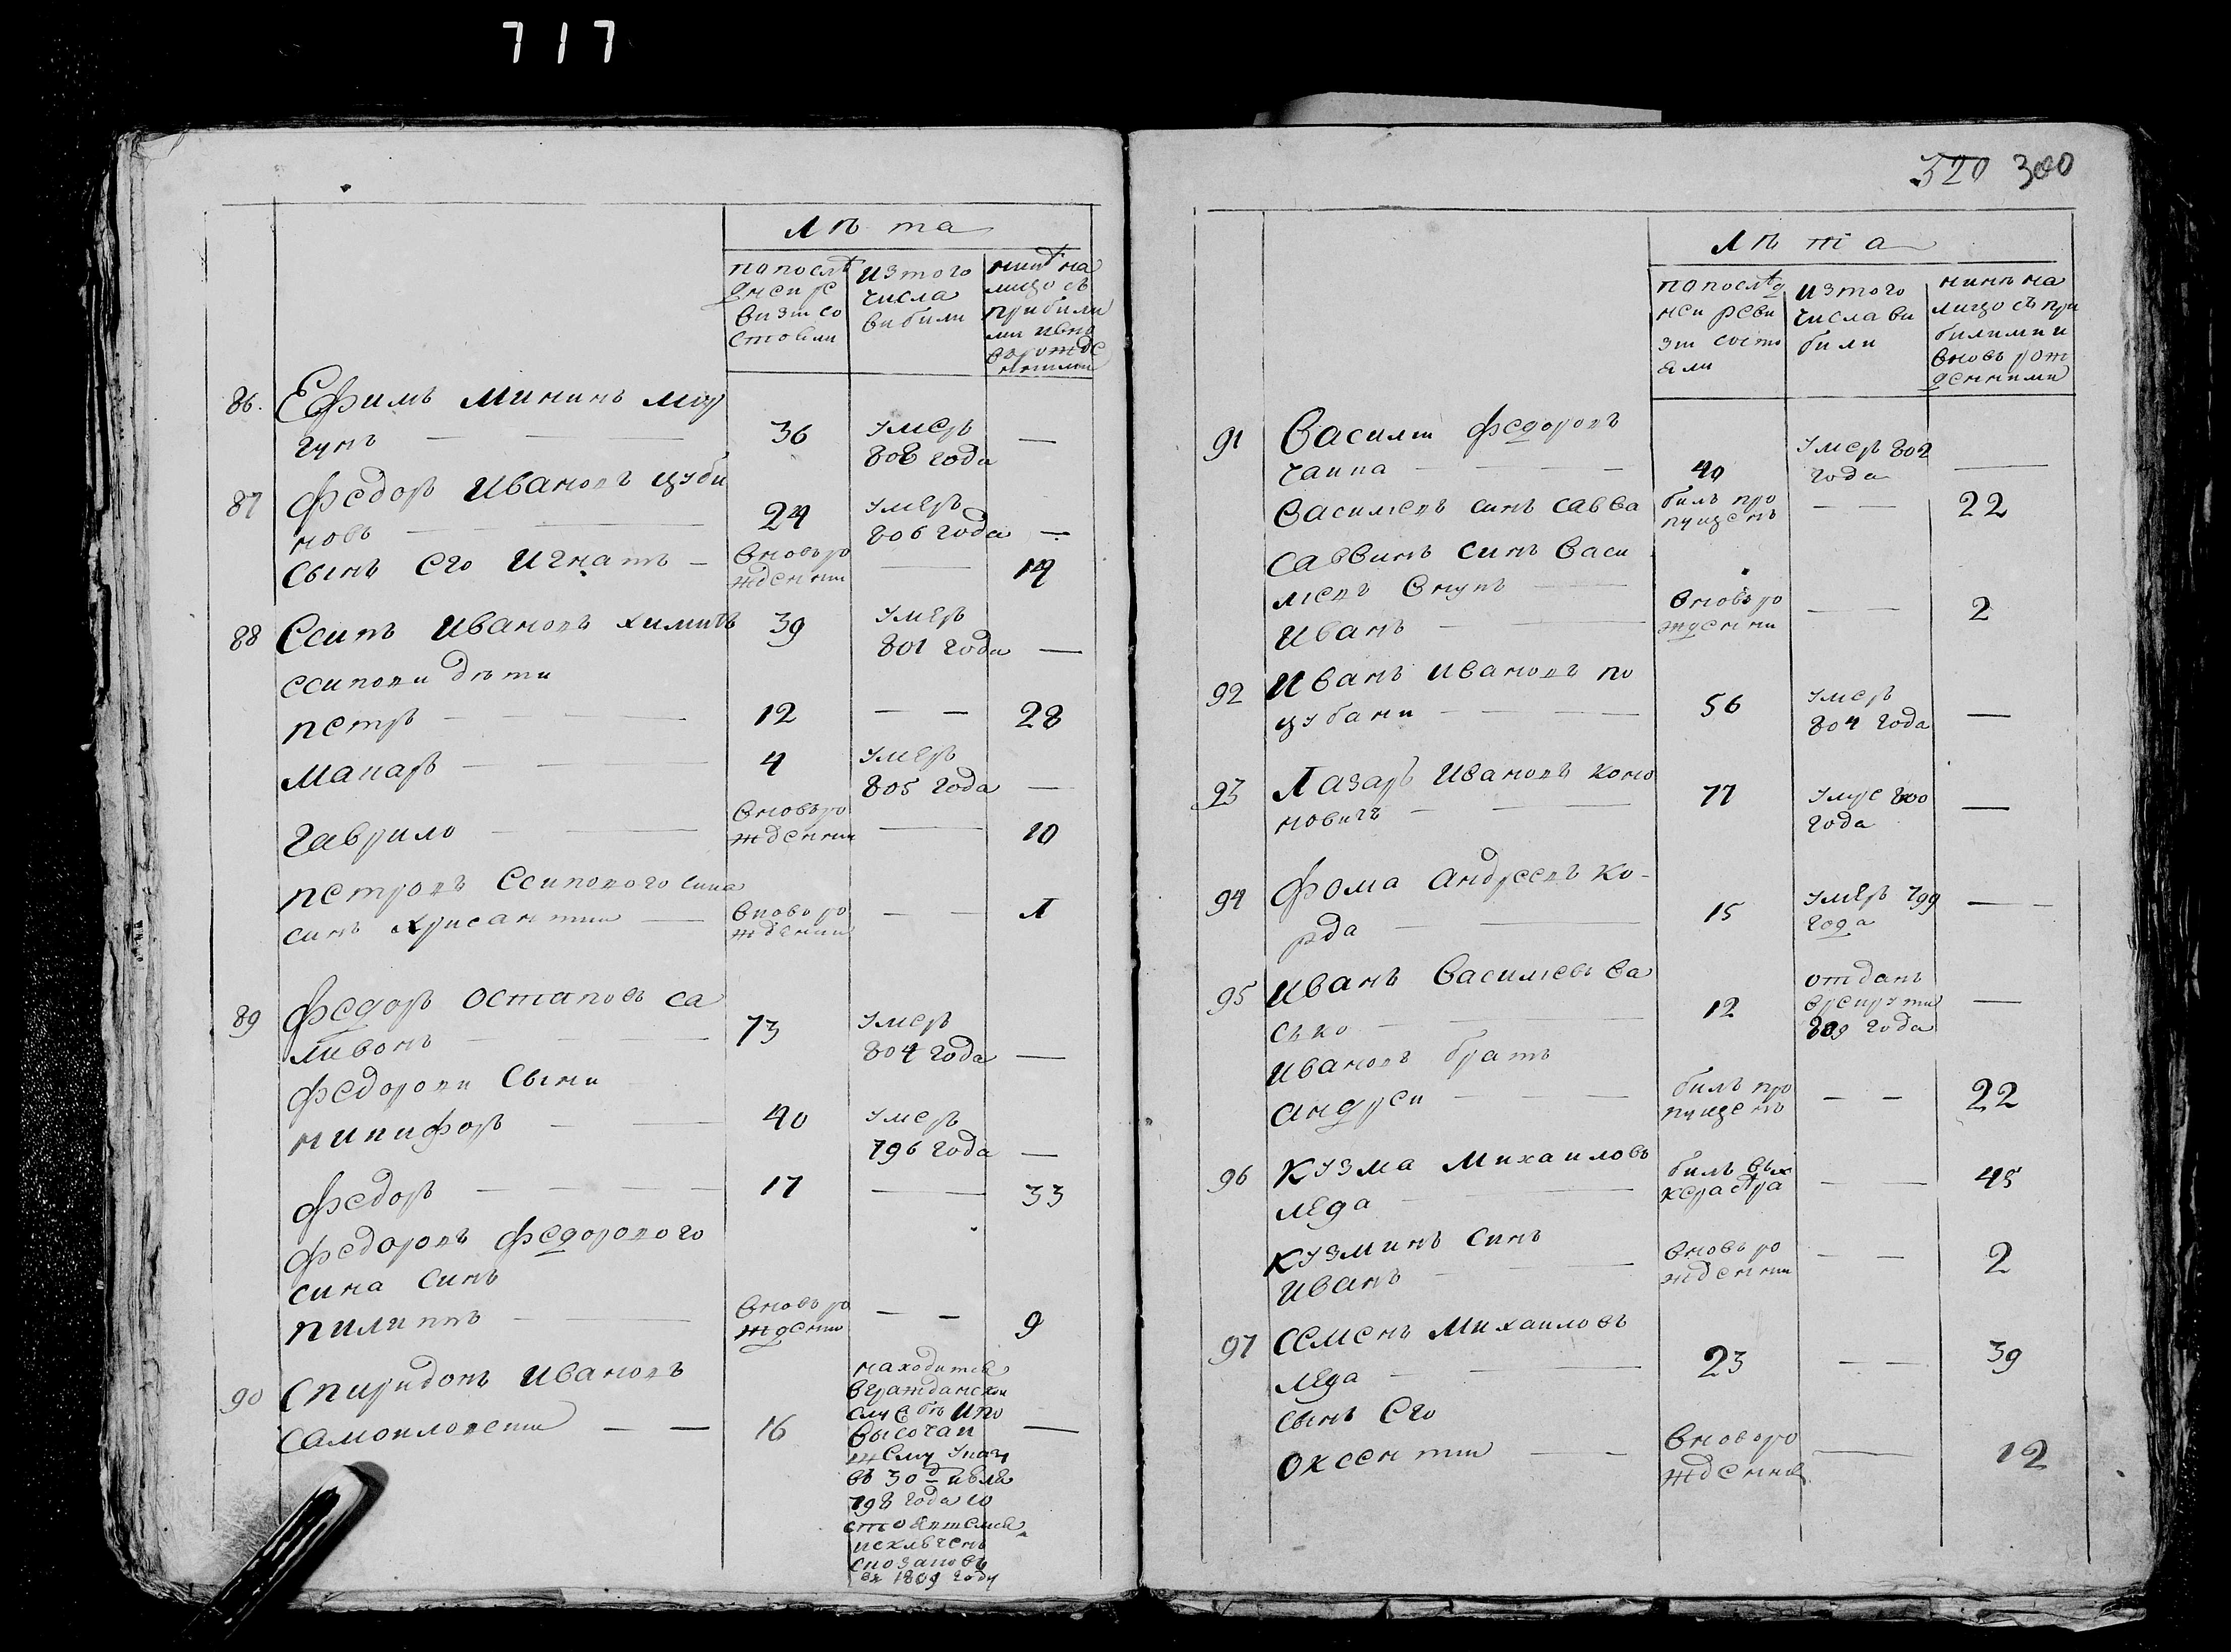 717
лѣта
попослѣ
дней ре
визiи со
стояли
изтого
числа
выбыли
нынѣ на
лицо съ
прибылы
ми ивнѡ
ворожде
нными
86. Ефимъ Мининъ
гунъ — — 36 умеръ —
808 года
87 Федоръ Ивановъ цуби
новъ — 24 умеръ
806 года —
Сынъ его Игнатъ — вновь ро
жденни — 14
88 Есипъ Ивановъ химичъ 39 умеръ
801 года —
есиповы дѣти
петръ — — 12 — — 28
макаръ — — 4 умеръ
805 года —
гаврило — — вновь ро
жденни — 10
петровъ Есипового сина
синъ Хрисантии — вновь ро
жденни — — 1
89 Федоръ остаповъ са
ливонъ — — 73 умеръ
804 года —
федоровы сыны
никифоръ — — 40 умеръ
796 года —
федоръ — — — 17 — 33
федоровъ федорового
сина синъ
пилипъ — — вновь ро
жденни — — 9
90 Спиридонъ Ивановъ
самойловский — — 16 —
находится
вгражданской
службѣ ипо
высочай
шему указу
въ 30 д июля
798 года со
стоявшемся
исключенъ
въ 1809 году
320 300
лѣта
попослѣд
ней реви
зiи состо
яли
изтого
числа вы
были
нынѣ на
лицо съ при
былыми и
вновь рож
денними
91 Василий Федоровъ
чайка — — — 40 умеръ 802 —
года
Васильевъ синъ савва билъ про
пущенъ — — 22
саввинъ синъ Васи
льевъ внукъ — —
Иванъ — — вновь ро
ждении — — 2
92 Иванъ Ивановъ по
цубани — — — 56 умеръ
804 года —
93 Лазаръ Ивановъ коно
новичъ — — — 77 умре 800 —
года
94 Фома Андреевъ ко-
рда — — 15 умеръ 799 — —
года
95 Иванъ Василиевъ ва
сько — — 12 отданъ
врекруты —
809 года
Ивановъ братъ
андреи — — — билъ про
пущенъ — — 22
96 Кузма Михаиловъ
леда — — билъ — — 45
Кузминъ синъ
Иванъ — — вновь ро
жденни — — 2
97 Семенъ Михаиловъ
леда — — 23 — — 39
сынъ его
Оксентии — — вновь ро
жденни — 12